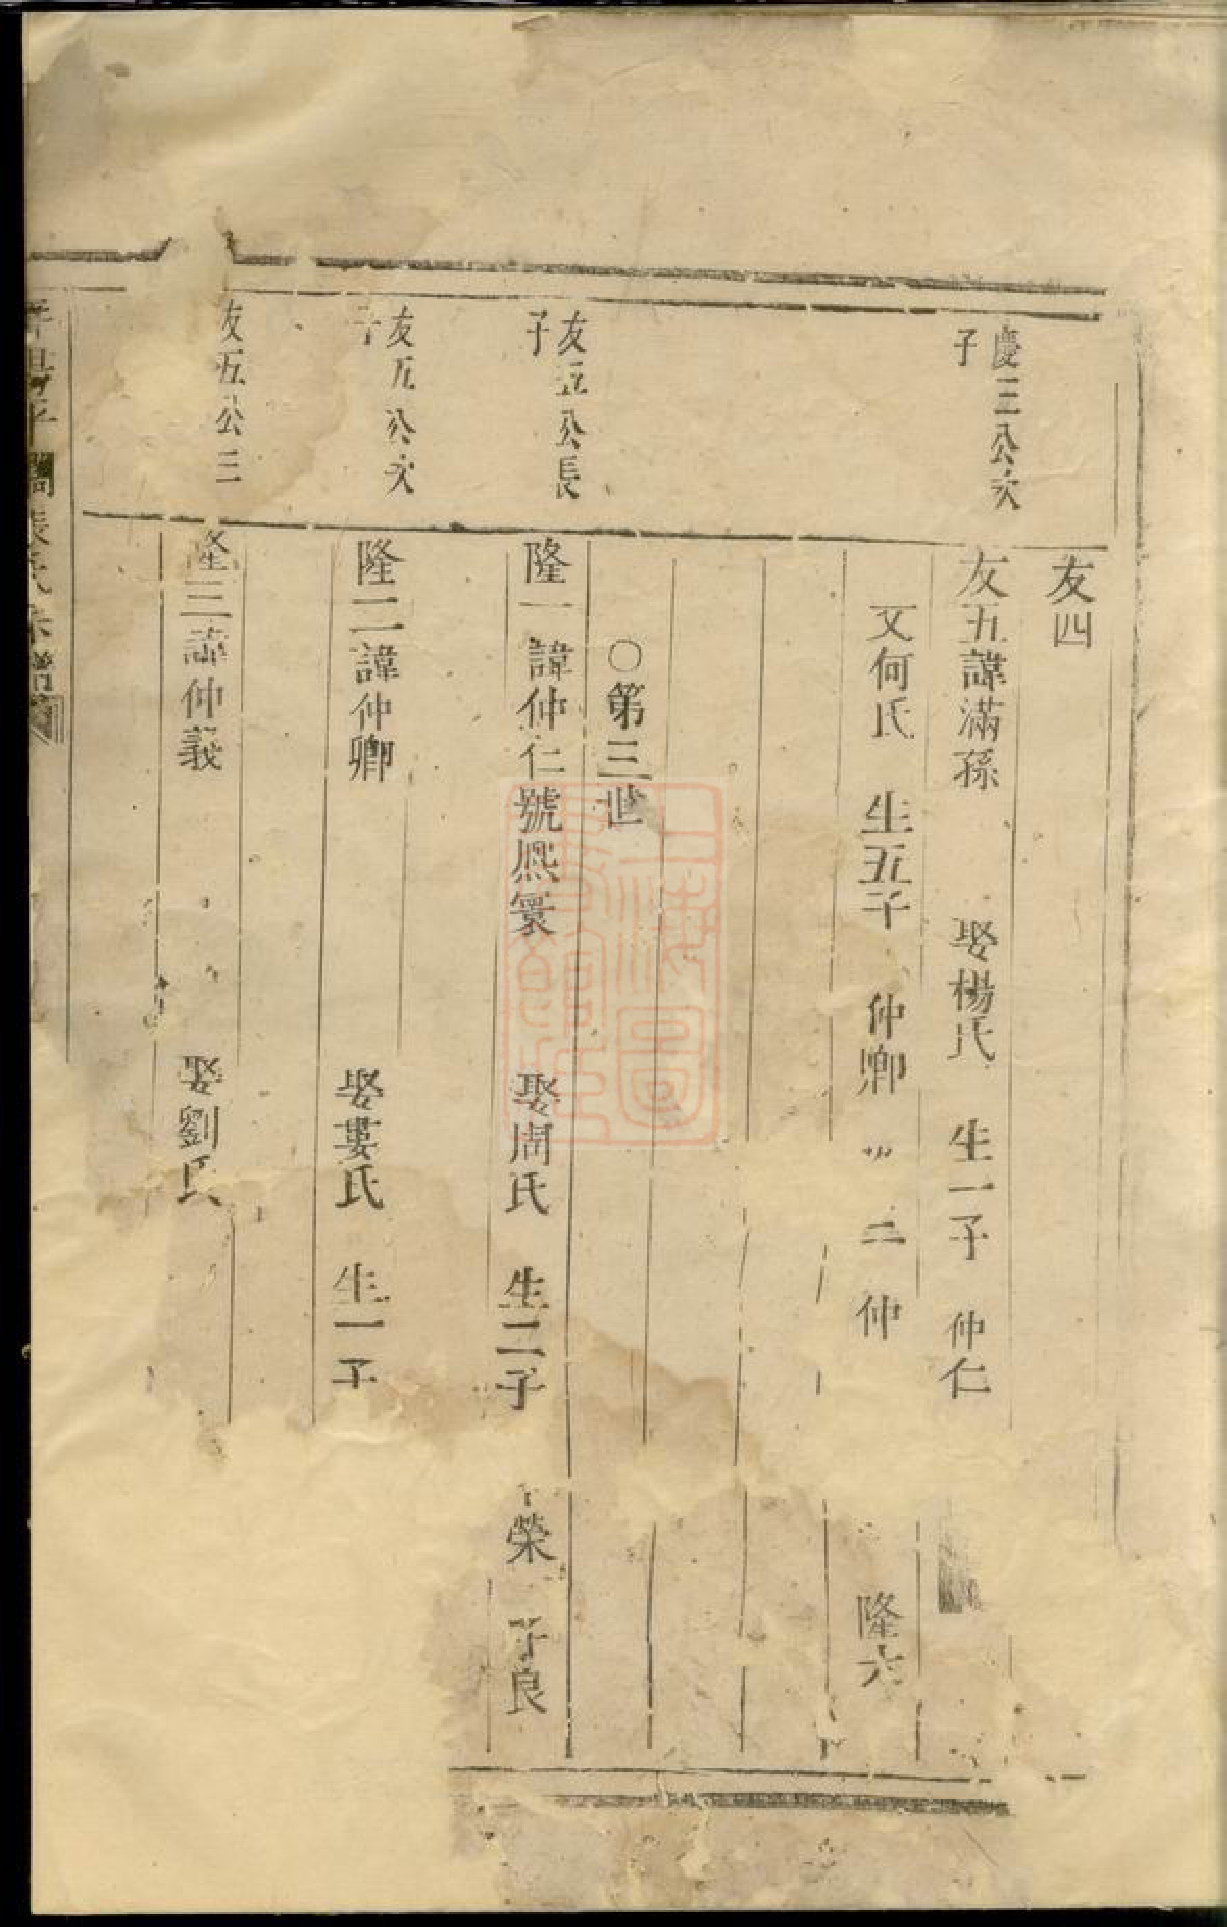 友四
慶三公次
子
友五諱滿孫 娶楊氏 生一子 仲仁
又何氏 生五子 仲卿 二 仲 隆六
○第三世
友五公長
子
隆一諱仲仁號熈寰 娶周氏 生二子 榮 子良
友五公次
子
隆二諱仲卿 娶婁氏 生一子
友五公三
隆三諱仲義 娶劉氏
上海圖